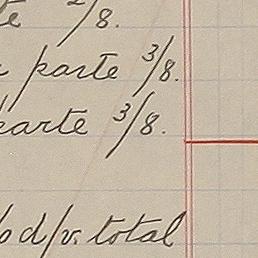 2/8.
parte 3/8.
parte 3/8.
d/v. total